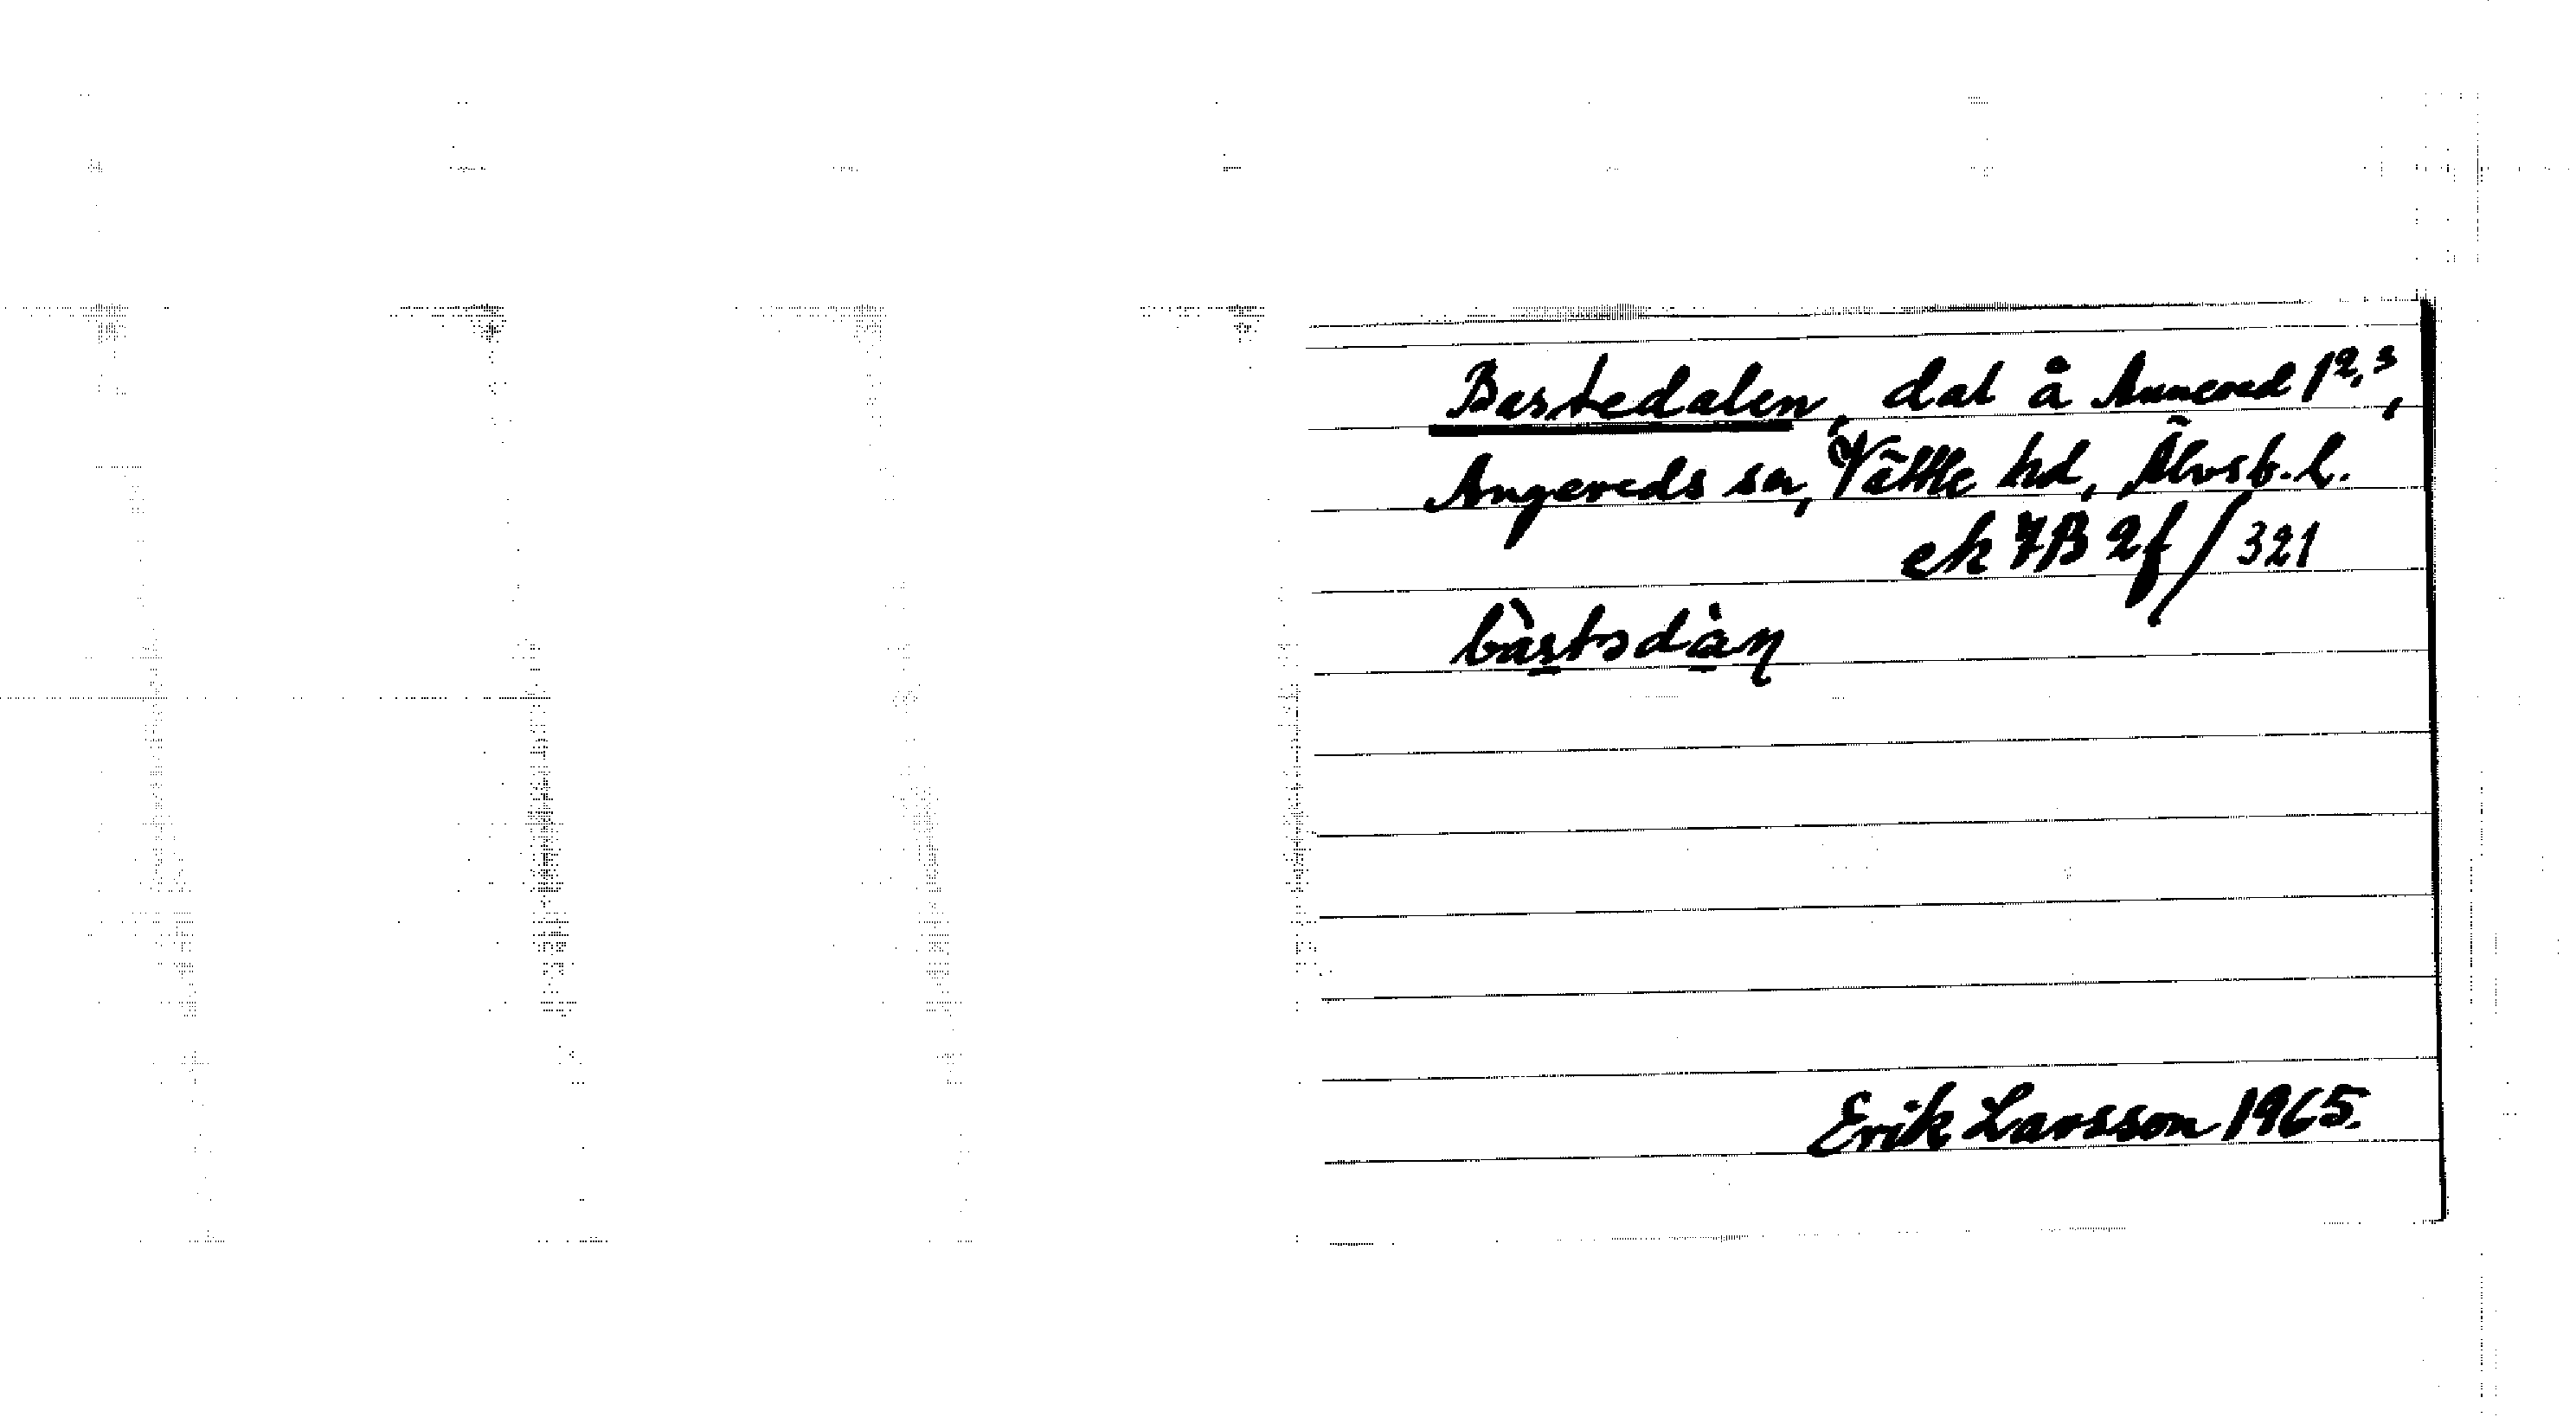 Bastedalen, dal å Annered 1²,³,
Angereds sn, Vättle hd, Älvsb. l.
ek 7B 2f/321
bàstədàn
Erik Larsson 1965.